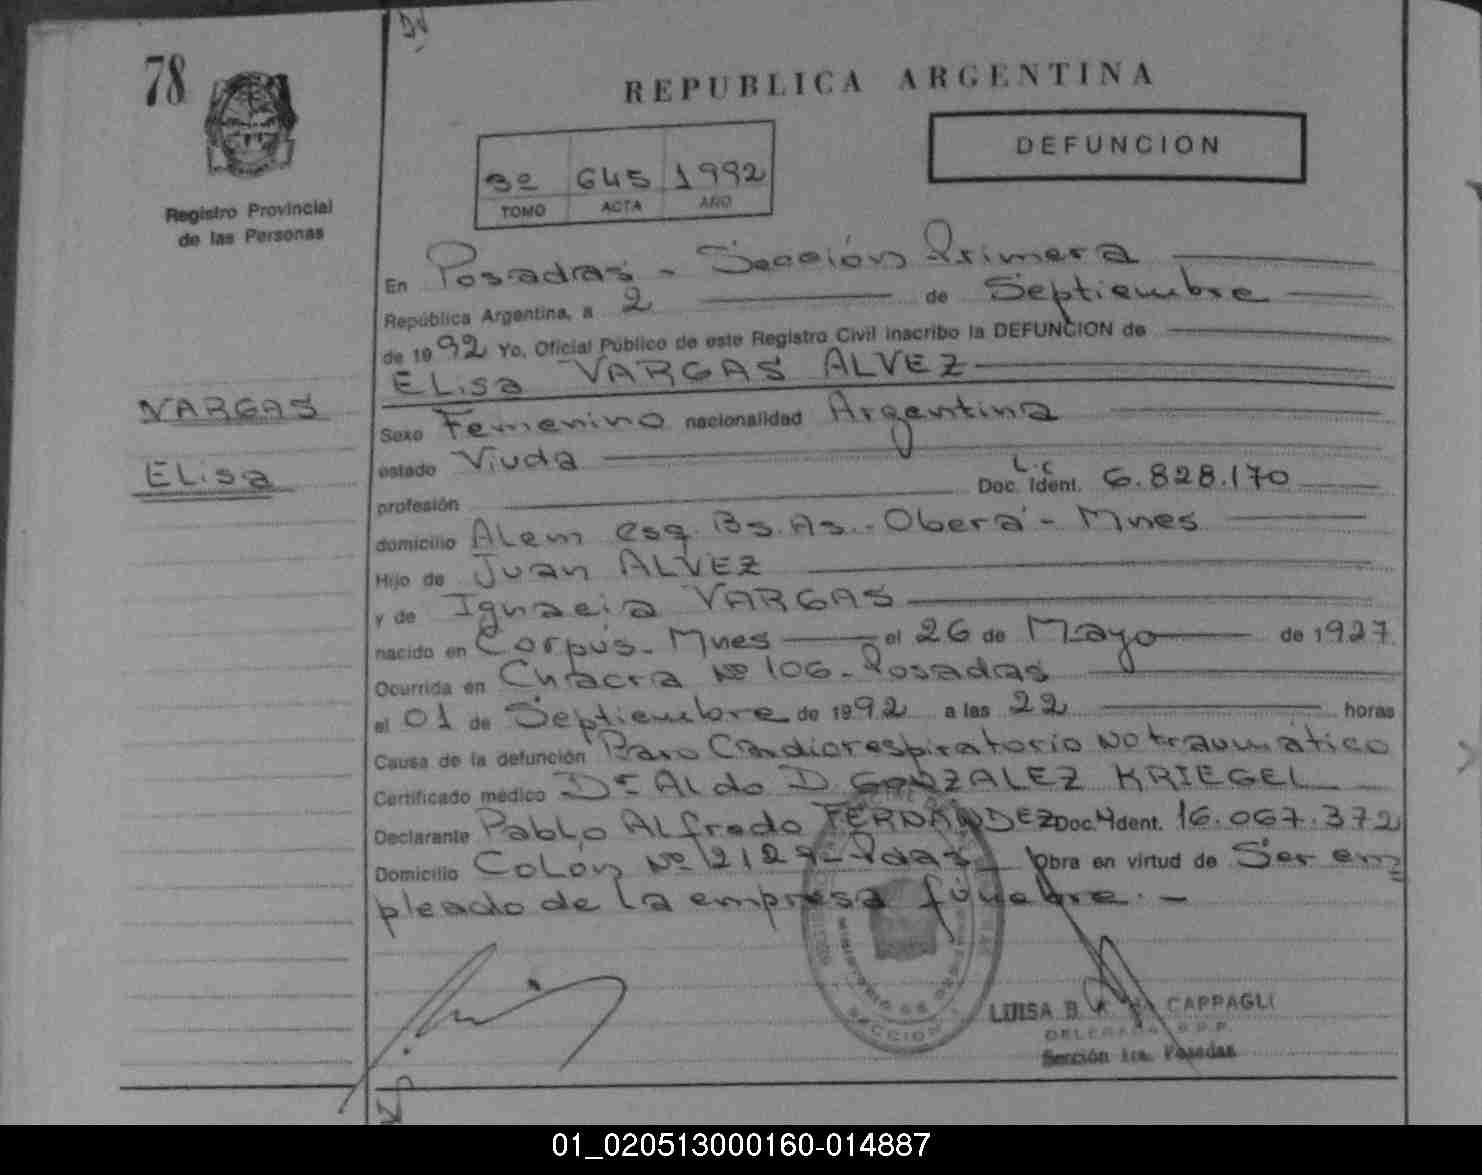 78
REPUBLICA ARGENTINA
DEFUNCION
3º 645 1992
TOMO ACTA AÑO
Registro Provincial
de las Personas
En Posadas - Sección Primera
República Argentina, a 2 de Septiembre
de 1992 Yo, Oficial Público de este Registro Civil inscribo la DEFUNCION de
ELisa VARGAS ALVEZ
VARGAS
ELisa
Sexo Femenino nacionalidad Argentina
estado Viuda
L.C
profesión Doc. Ident. 6.828.170
domicilio Alem esq. Bs. As. - Oberá - Mnes
Hijo de Juan ALVEZ
y de Ignacia VARGAS
nacido en Corpus - Mnes el 26 de Mayo de 1927
Ocurrida en Chacra Nº 106 - Posadas
el 01 de Septiembre de 1992 a las 22 horas
Causa de la defunción Paro Cardiorespiratorio No traumático
Certificado médico Dr Aldo D GONZALEZ KRIEGEL
Declarante Pablo Alfredo FERNANDEZ Doc. Ident. 16.067.372
Domicilio Colón Nº 2129 - Pdas Obra en virtud de Ser em
pleado de la empresa fúnebre. -
LUISA B. CAPPAGLI
DELEGADA R.P.P.
Sección 1ra. Posadas
SECCION
01_020513000160-014887